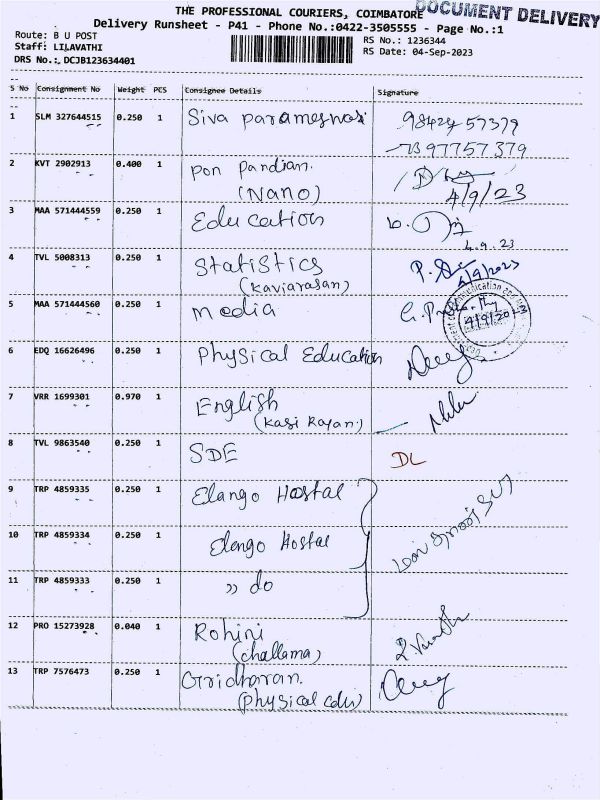 THE PROFESSIONAL COURIERS, COIMBATORE
DOCUMENT DELIVERY
Delivery Runsheet - P41 - Phone No.:0422-3505555 - Page No.:1
Route: B U POST
RS No.: 1236344
Staff: LILAVATHI
RS Date: 04-Sep-2023
DRS No.:, DCJB123634401
S No Consignment No Weight PCS Consignee Details Signature
1 SLM 327644515 0.250 1 Siva parameswari
7397757379
2 KVT 2902913 0.400 1 pon pandian.
(Nano) 4/9/23
3 MAA 571444559 0.250 1 Education
4.9.23
4 TVL 5008313 0.250 1 Statistics
(kaviarasan) 4/9/2023
5 MAA 571444560 0.250 1 media
4/9/2023
6 EDQ 16626496 0.250 1 Physical Education
7 VRR 1699301 0.970 1 English
(kasi Rajan)
8 TVL 9863540 0.250 1 SDE DL
9 TRP 4859335 0.250 1 Elango Hostal
10 TRP 4859334 0.250 1 Elango Hostal
11 TRP 4859333 0.250 1 ,, do
12 PRO 15273928 0.040 1 Rohini
(challama)
13 TRP 7576473 0.250 1 Giridharan.
(physical edu)